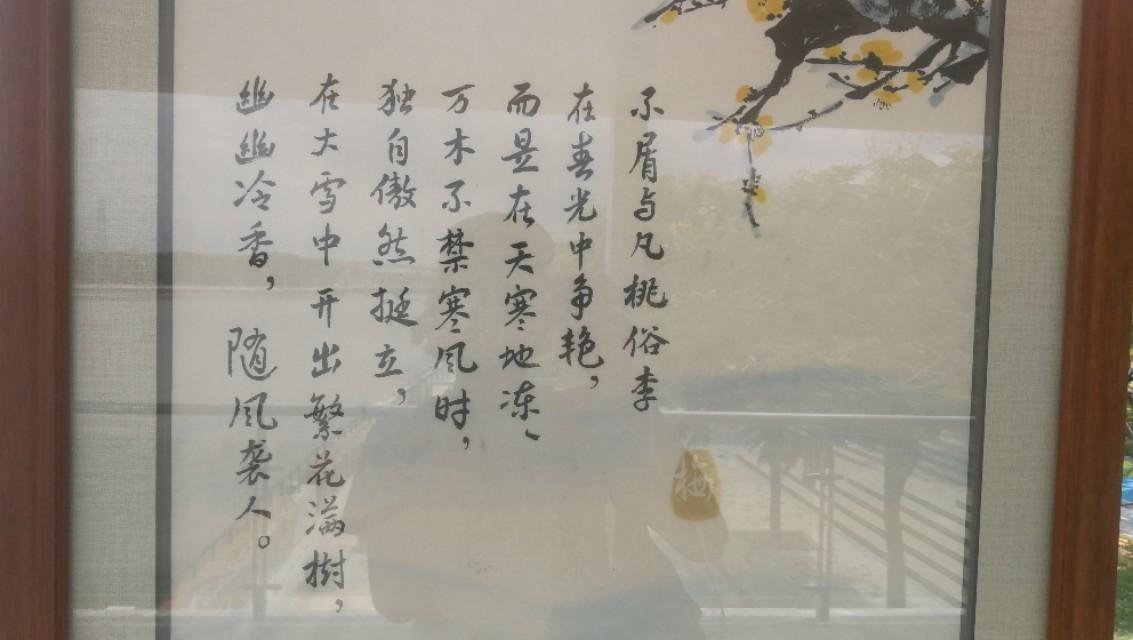 不屑与凡桃俗李
在春光中争艳，
而是在天寒地冻、
万木不禁寒风时，
独自傲然挺立，
在大雪中开出繁花满樹，
幽幽冷香，随风袭人。
梅